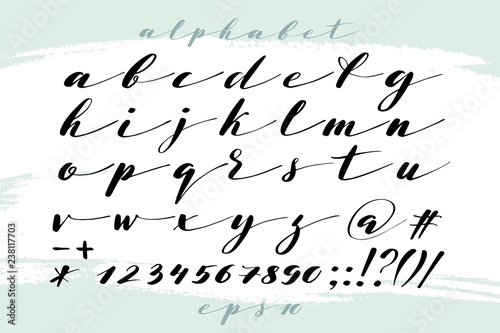 alphabet
a b c d e f g
h i j k l m n
o p q r s t u
v w x y z @ #
- +
* 1 2 3 4 5 6 7 8 9 0 ; : ! ? ( ) /
eps10
238117703